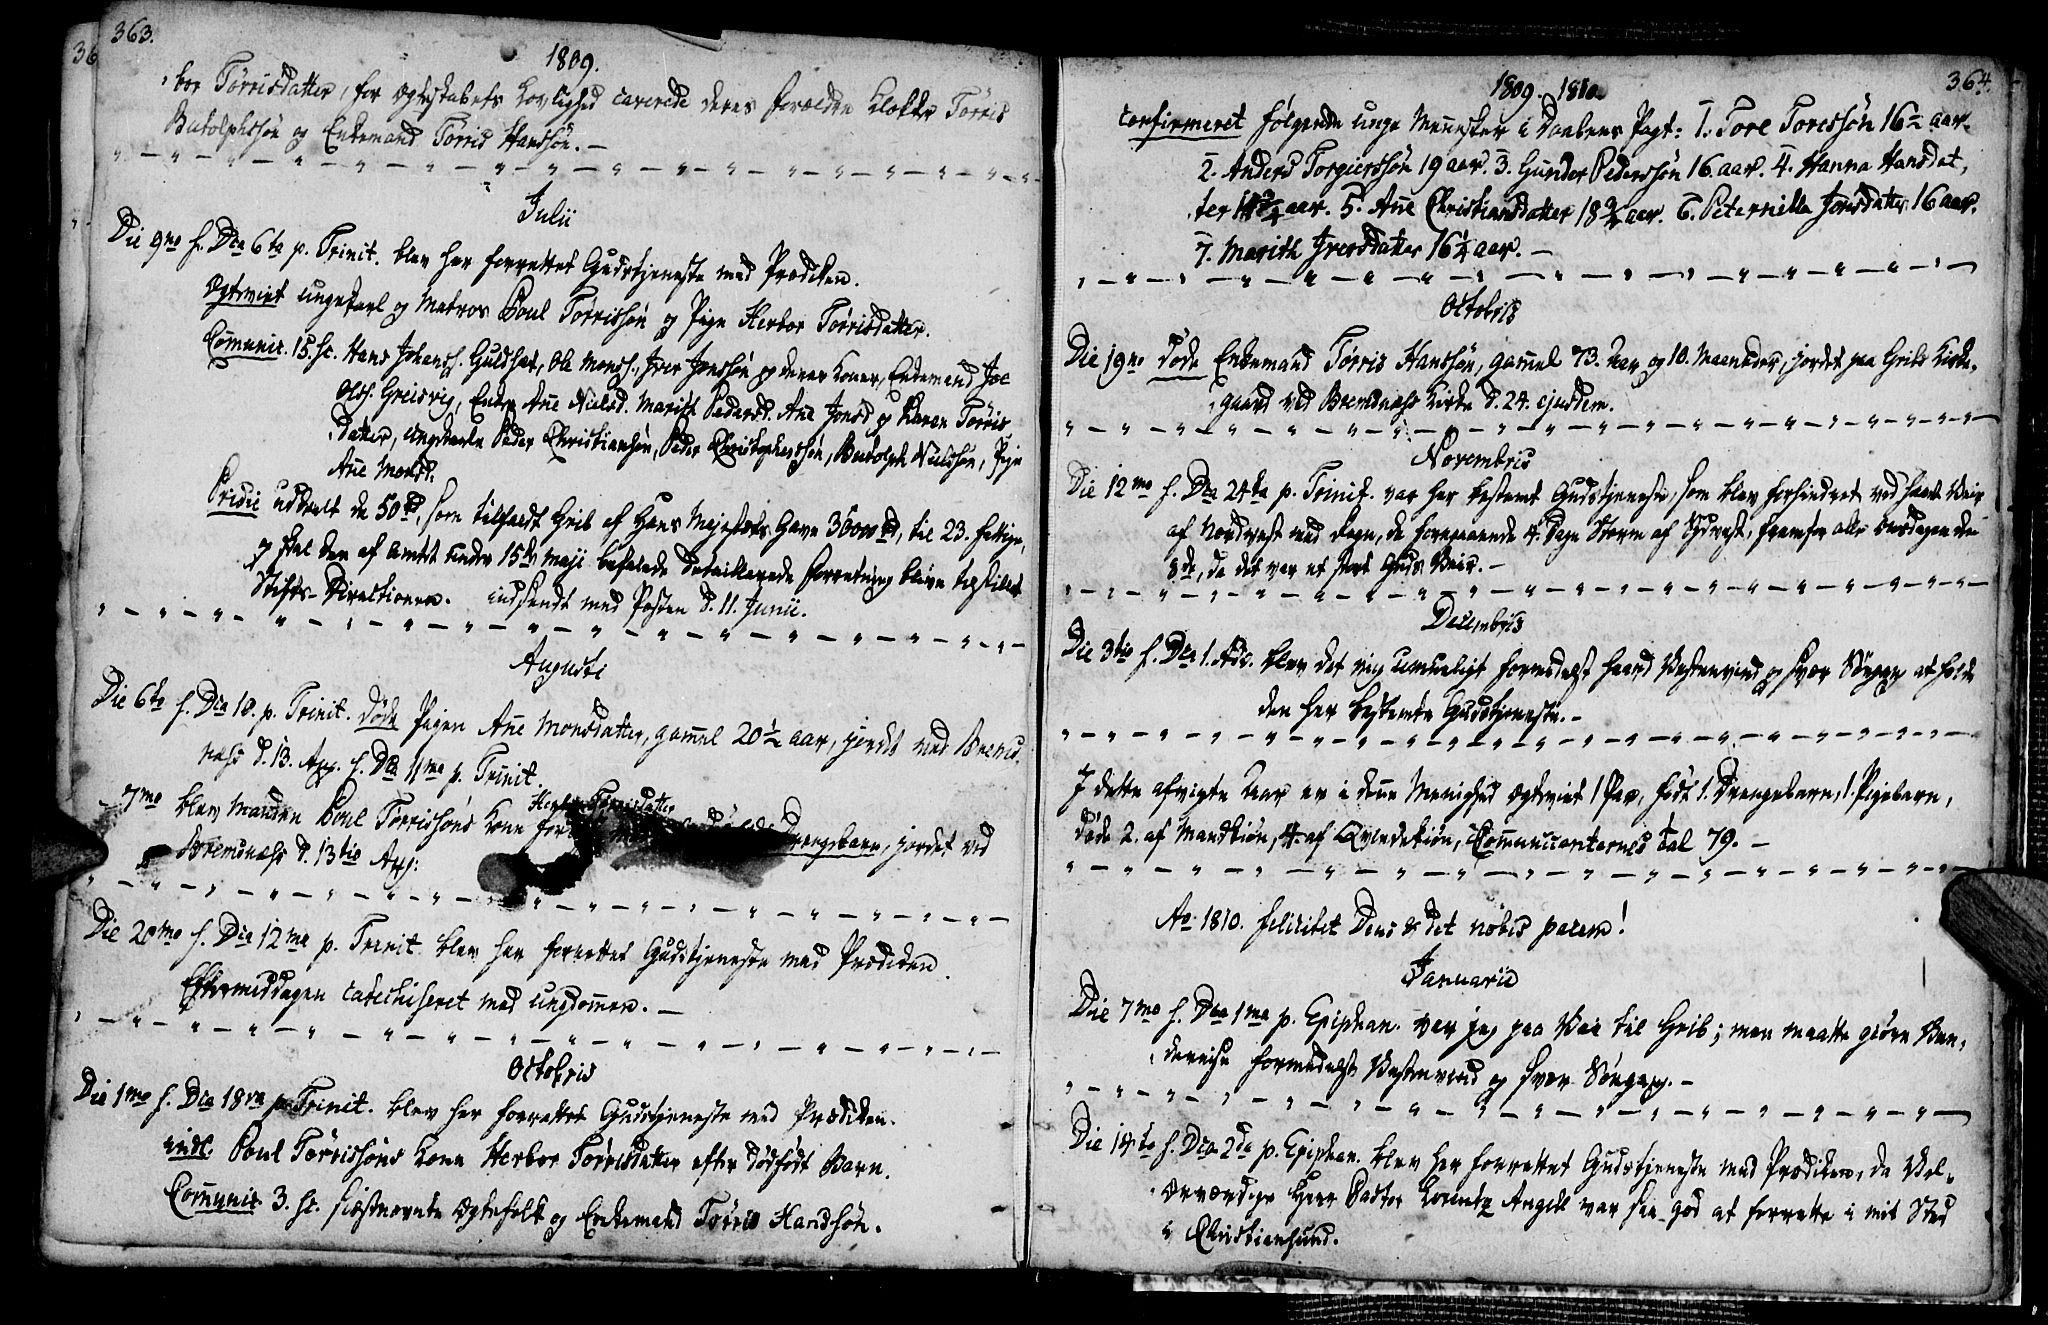 363.
1809.
bor Tørrisdatter, for Ægteskabets Lovlighed caverede deres Forældre Klokker Tørris
Butolphssøn og Enkemand Tørris Hanssøn. —
Julii
Die 9no f. Dca 6ta p. Trinit. blev her forrettet Gudstjeneste med Prædiken.
Ægteviet ungekarl og Matros Poul Tørrissøn og Pige Herbor Tørrisdatter.
Com̅unic. 15. sc. Hans Johanss. Guldhat, Ole Monss., Iver Jonssøn og deres Koner, Enkemand Joe
Olss. Greisvig, Enke An̅e Nielsd. Marith Pedersd. Ane Jonsd og Karen Tørris
datter, ungekarle Peder Christiansøn, Peder Christophersøn, Butolph Nielssøn, Pige
An̅e Monsd.
Pridie uddeelt de 50 rd, som tilfaldt Grib af Hans Majestets Gave 36000 rd, til 23. fattige,
og skal den af Amtet under 15de Maji befalede detaillerede Forretning blive tilstillet
Stifts-Directionen. indsendt med Posten d. 11. Junii.
Augusti
Die 6to f. Dca 10. p. Trinit. døde Pigen An̅e Monsdatter, gam̅el 20½ aar, jordet ved Brems-
næss d. 13. Aug. f. Dca 11ma p. Trinit.
7mo blev Manden Poul Tørrissøns Kone Herbor Tørrisdatter
Drengebarn, jordet ved
Bremsnæss d. 13tio Aug:
Die 20mo f. Dca 12ma p. Trinit. blev her forrettet Gudstjeneste med Prædiken
Eftermiddagen catechiseret med ungdom̅en. —
Octobris
Die 1mo f. Dca 18va p. Trinit. blev her forrettet Gudstjeneste med Prædiken.
indl. Poul Tørrissøns Kone Herbor Tørrisdatter efter dødfødt Barn.
Com̅unic. 3. sc. sidstnævnte Ægtefolk og Enkemand Tørris Handsøn.
1809. 1810.
364.
confirmeret følgende unge Men̅esker i Daabens Pagt: 1. Tore Toressøn 16½ aar.
2. Anders Torgierssøn 19 aar. 3. Gunder Pederssøn 16. aar. 4. Hanna Hansdat,
ter ¾ aar. 5. An̅e Christiansdatter 18¾ aar. 6. Peternilla Jonsdatter 16 aar.
7. Marith Iversdatter 16¼ aar. —
Octobris
Die 19no døde Enkemand Tørris Hanssøn, gam̅el 73. Aar og 10. Maaneder, jordet paa Gribs Kirke-
gaard ved Bremsnæss Kirke d. 24. ejusdem.
Novembris
Die 12mo f. Dca 24ta p. Trinit. var her bestemt Gudstjeneste, som blev forhindret ved haardt Veir
af Nordvest med Regn, de foregaaende 4. Dage Storm af Sydvest, fremfor alle Onsdagen den
8de, da det var et stort Guds Veir. —
Decembris
Die 3tio f. Dca 1. Adv. blev det mig umueligt formedelst haard Vestenvind og svær Søegang at holde
den her bestemte Gudstjeneste. —
I dette afvigte Aar er i den̅e Menighed Ægteviet 1 Par, født 1. Drengebarn, 1. Pigebarn,
døde 2. af Mandkiøn, 4. af Qvindekiøn, Com̅unicanternes tal 79. —
Ao 1810. felicitet Deus & det nobis pacem!
Januarii
Die 7mo f. Dca 1ma p. Epiphan. var jeg paa Vei til Grib; men maatte giøre Ven,
dereise formedelst Vestenvind og svær Søegang. —
Die 14to f. Dca 2da p. Epiphan. blev her forrettet Gudstjeneste med Prædiken, da Vel-
ærværdige Herr Pastor Lorentz Angell var saa god at forrette i mit Sted
i Christiansund.